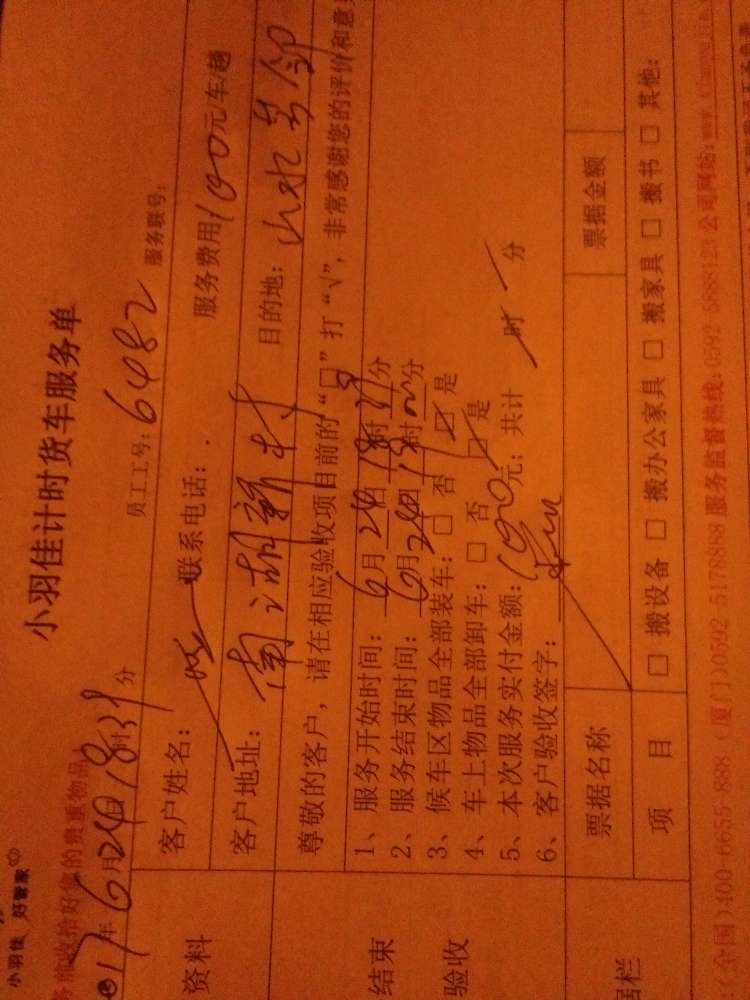 小羽佳 好管家
小羽佳计时货车服务单
务前收拾好您的贵重物品
17年6月24日18时39分
员工工号：6482
服务联号：
资料
客户姓名：
联系电话：
服务费用100元/车/趟
客户地址：南湖新村
目的地：山水芳邻
尊敬的客户，请在相应验收项目前的“□”打“√”，非常感谢您的评价和意
结束
验收
1、服务开始时间：6月24日18时39分
2、服务结束时间：6月24日19时分
3、候车区物品全部装车：□ 否 □ 是
4、车上物品全部卸车：□ 否 □ 是
5、本次服务实付金额：100元；共计 时 分
6、客户验收签字：
据栏
票据名称
票据金额
项 目
□ 搬设备 □ 搬办公家具 □ 搬家具 □ 搬书 □ 其他：
（全国）400-6655-888 （厦门）0592 5178888 服务监督热线：0592 5888123 公司网站：www.xiaoyujia.